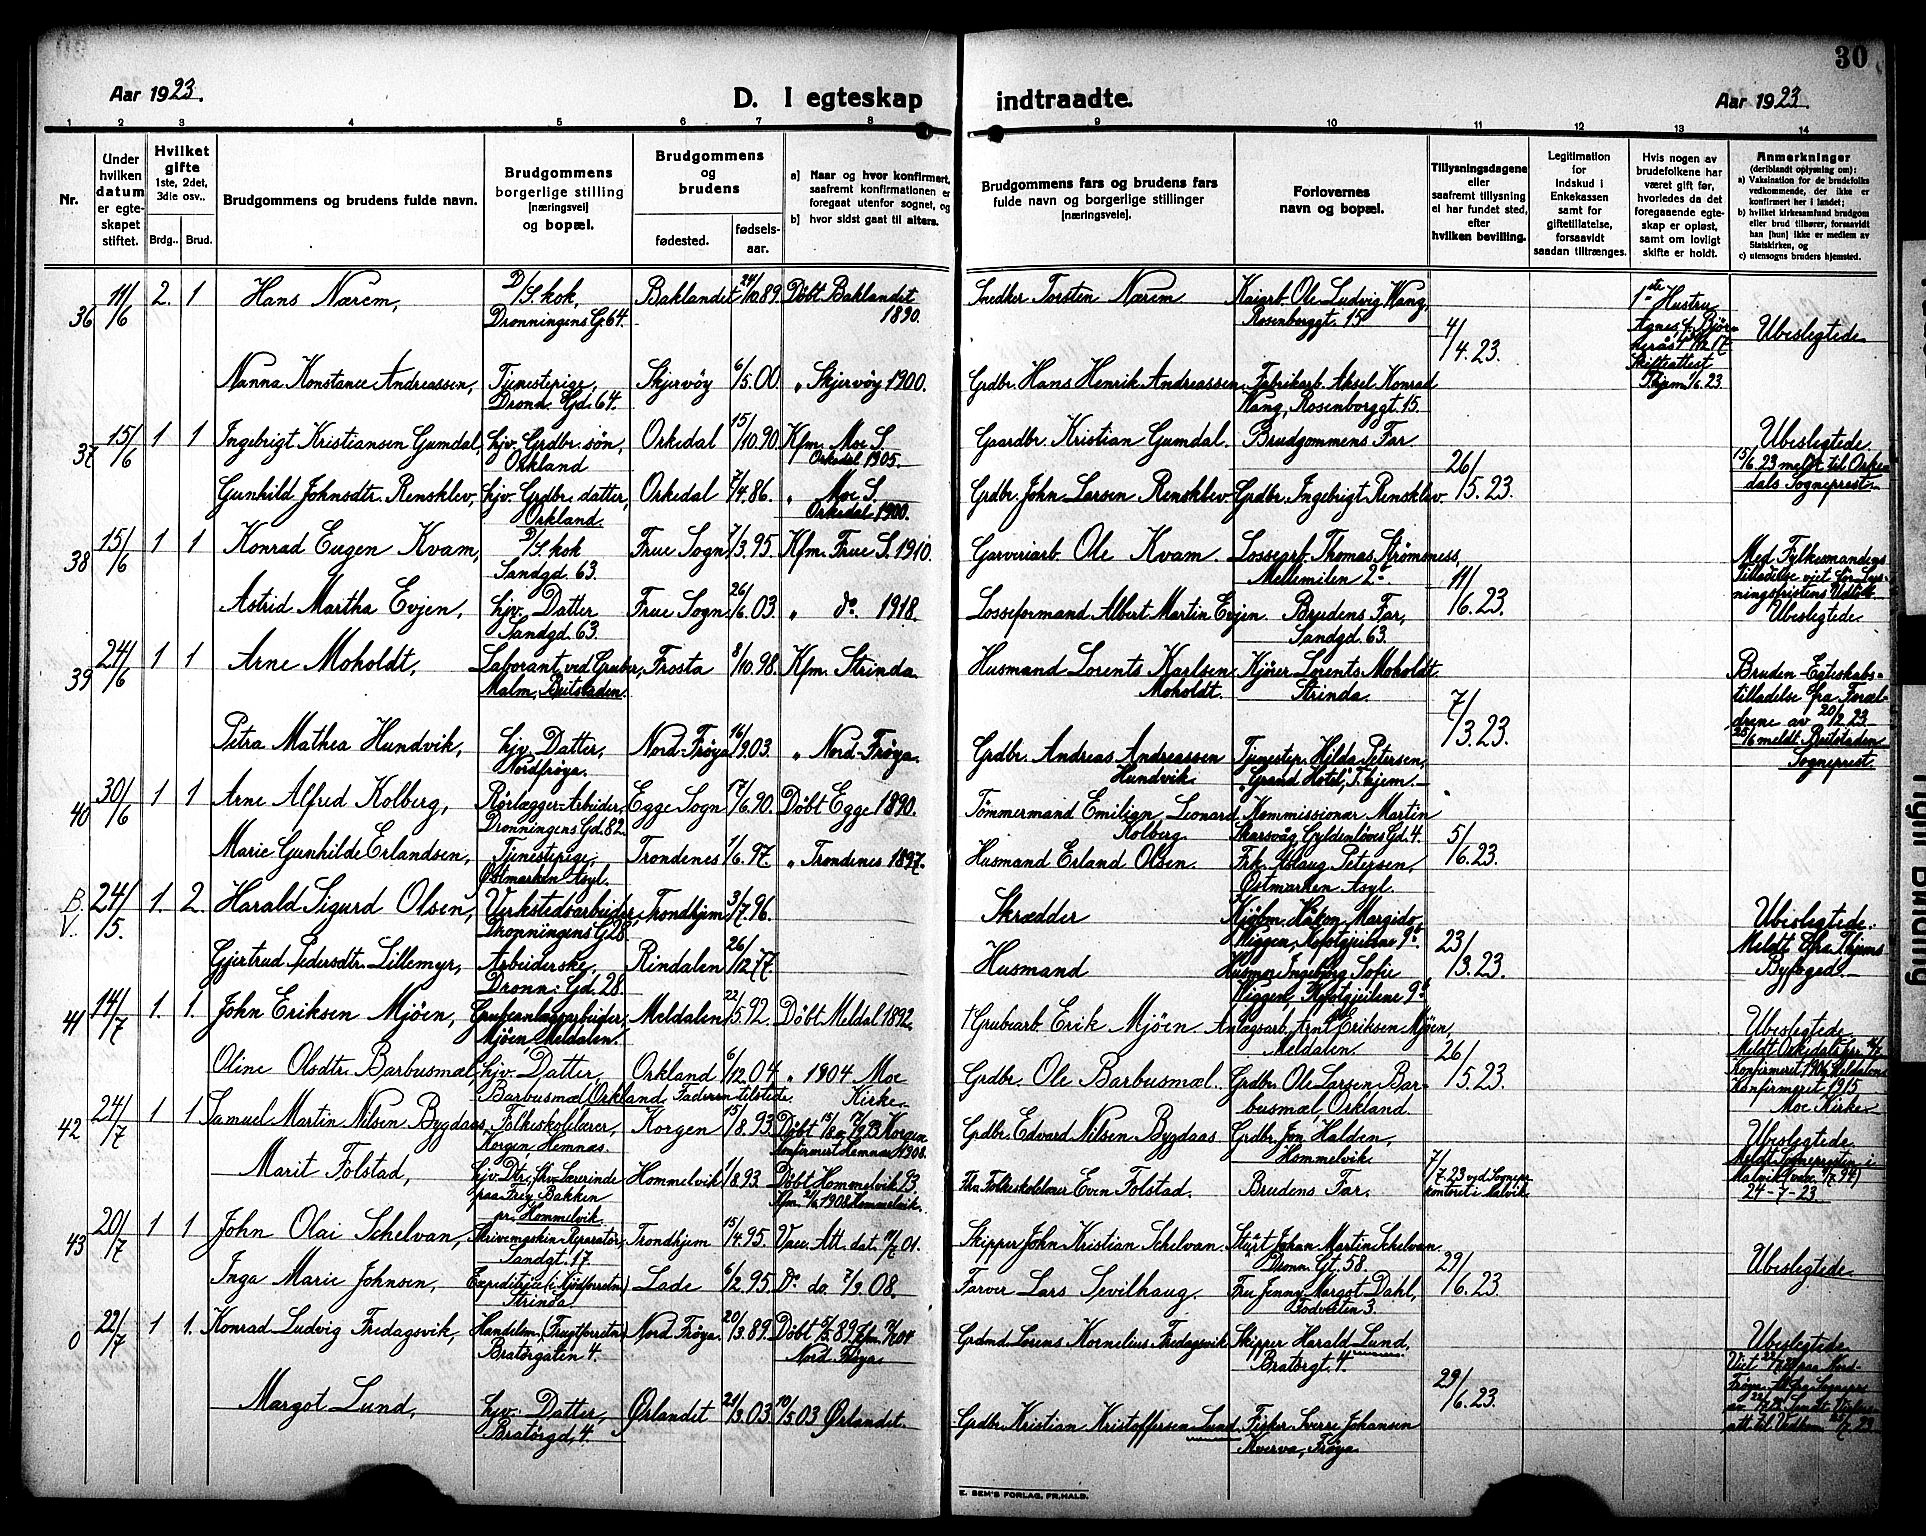 30
Aar 1923.
D. I egteskap indtraadte.
Aar 1923.
1 2 3 4 5 6 7 8 9 10 11 12 13 14
Nr.
Under hvilken datum er egteskapet stiftet.
Hvilket gifte 1ste, 2det, 3die osv..
Brdg.. Brud.
Brudgommens og brudens fulde navn.
Brudgommens borgerlige stilling [næringsvei] og bopæl.
Brudgommens og brudens
fødested. fødselsaar.
a) Naar og hvor konfirmert, saafremt konfirmationen er foregaat utenfor sognet, og
b) hvor sidst gaat til alters.
Brudgommens fars og brudens fars fulde navn og borgerlige stillinger [næringsveie].
Forlovernes navn og bopæl.
Tillysningsdagene eller saafremt tillysning ei har fundet sted, efter hvilken bevilling.
Legitimation for Indskud i Enkekassen samt for giftetillatelse, forsaavidt saadan tiltrænges.
Hvis nogen av brudefolkene har været gift før, hvorledes da det foregaaende egteskap er opløst, samt om lovligt skifte er holdt.
Anmerkninger (deriblandt oplysning om):
a) Vaksination for de brudefolks vedkommende, der ikke er konfirmert her i landet;
b) hvilket kirkesamfund brudgom eller brud tilhører, forsaavidt han [hun] ikke er medlem av Statskirken, og
c) utensogns bruders hjemsted.
36 11/6 2. 1 Hans Nærem, D/S. kok, Dronningens G. 64. Baklandet 24/10.89. Døbt Baklandet 1890. Snedker Torsten Nærem Kaiarb. Ole Ludvig Wang, Rosenborggt. 15 4/4.23. 1ste Hustru Agnes f. Ubeslegtede
Nanna Konstance Andreassen, Tjenestepige, Dronn. Gd. 64. Skjervøy 6/5.00. " Skjervøy 1900. Grdbr. Hans Henrik Andreassen Fabrikarb. Aksel Konrad Wang, Rosenborggt. 15. Skifteattest Thjem 1/6 23
37 15/6 1 1 Ingebrigt Kristiansen Gumdal, hjv. Grdbr. søn, Orkland Orkedal 15/10.90. Kfm. Moe S. Orkedal 1905. Gaardbr. Kristian Gumdal. Brudgommens Far 26/5.23. Ubeslegtede 15/6 23 meldt til Orkedals Sogneprest
Gunhild Johnsdtr. Rensklev, hjv. Grdbr. datter, Orkland. Orkedal 7/4.86. " Moe S. Orkedal 1900. Grdbr. John Larsen Rensklev Grdbr. Ingebrigt Rensklev
38 15/6 1 1 Konrad Eugen Kvam, D/S. kok Sandgd. 63. Frue Sogn 7/3.95. Kfm. Frue S. 1910. Garveriarb. Ole Kvam. Lossearb. Thomas Strømsness, Mellemilen 2c 11/6.23. Med Fylkesmandens Tilladelse viet før Lysningsfristens Udløb. Ubeslegtede
Astrid Martha Evjen, hjv. Datter Sandgd. 63. Frue Sogn 26/6.03 " do. 1918. Losseformand Albert Martin Evjen Brudens Far, Sandgd. 63.
39 24/6 1 1 Arne Moholdt, Laborant ved Gruber, Malm, Beitstaden. Frosta 8/10.98. Kfm. Strinda Husmand Lorents Karlsen Moholdt. Kjører Lorents Moholdt Strinda. 7/3.23. Bruden Egteskabstilladelse fra Forældrene av 20/2 23. 25/6 meldt Beitstaden Sogneprest.
Petra Mathea Hundvik, hjv. Datter, Nordfrøya. Nord-Frøya 16/9.03. " Nord-Frøya. Grdbr. Andreas Andreassen Hundvik Tjenestep. Hilda Petersen, "Grand Hotel", T.hjem.
40 30/6 1 1 Arne Alfred Kolberg, Rørlægger-Arbeider Dronningens Gd. 82. Egge Sogn 7/6.90. Døbt Egge 1890. Tømmermand Emilian Leonard Kolberg Kommissionær Martin Skarsvåg, Gyldenløves Gd. 4. 5/6.23.
Marie Gunhilde Erlandsen, Tjenestepige, Østmarken Asyl. Trondenes 1/6.97. " Trondenes 1897. Husmand Erland Olsen. Frk. Petersen, Østmarken Asyl.
B.V. 24/5. 1. 2. Harald Sigurd Olsen, Verkstedsarbeider, Dronningens G. 28. Trondhjem 3/7.96. Skrædder Kjøbm. Håkon Margido Wiggen, 9b 23/3.23. Ubeslegtede. Meldt fra Thjems Byfoged.
Gjertrud Pedersdtr. Lillemyr, Arbeiderske, Dronn: Gd. 28. Rindalen 26/12.77. Husmand Husmor Ingeborg Sofie Wiggen, 9b
41 14/7 1. 1. John Eriksen Mjøen, Grubeanlægsarbeider, Mjøen, Meldalen. Meldalen 22/5.92. Døbt Meldal 1892. † Grubearb. Erik Mjøen Anlægsarb. Arnt Eriksen Mjøen, Meldalen. 26/5.23. Ubeslegtede
Oline Olsdtr. Barbusmæl, hjv. Datter, Barbusmæl, Orkland. Faderen tilstede. Orkland 6/12.04 " 1904 Moe Kirke. Grdbr. Ole Barbusmæl. Grdbr. Ole Larsen Barbusmæl, Orkland. Konfirmeret 1906 Meldalen Konfirmeret 1915 Moe Kirke
42 24/7 1 1 Samuel Martin Nilsen Bygdaas, Folkeskolelærer, Korgen, Hemnæs. Korgen 15/8.93. Døbt Korgen Konfirmert Hemnæs 1908. Grdbr. Edvard Nilsen Bygdaas Grdbr. Jon Halden, Hommelvik. 7/7.23 ved Sognepr. kontoret i Malvik Ubeslegtede Meldt Sognepresten i Malvik 24-7-23
Marit Folstad, hjv. Dtr., Lærerinde paa Frey Bakken pr. Hommelvik. Hommelvik 1/8.93. Døbt Hommelvik 93 Kfm. 1908 Hommelvik. Fhv. Folkeskolelærer Even Folstad. Brudens Far.
43 20/7 1 1 John Olai Schelvan, Skrivemaskin Reparatør, Sandgt. 17. Trondhjem 15/4.95. Vacc. Att. dat. 01. Skipper John Kristian Schelvan. Johan Martin Schelvan Dronn. Gt. 58. 29/6.23. Ubeslegtede
Inga Marie Johnsen, Expeditrice (i Kjødforretn) Strinda Lade 6/2.95. Do. do. 7/9.08. Farver Lars Sevilhaug. Fru Jenny Margot Dahl, Fodveiten 3.
0 22/7 1 1. Konrad Ludvig Fredagsvik, Handelsm. (Frugtforretn) Bratørgaten 4. Nord Frøya. 20/3.89. Døbt 89. Kfm. 04 Nord Frøya Grdmd Lorens Kornelius Fredagsvik Skipper Harald Lund, Bratørgt. 4 29/6.23. Ubeslegtede
Margot Lund, hjv. Datter, Bratørgd. 4. Ørlandet 21/3.03. 10/5 03 Ørlandet. Grdbr. Kristian Kristoffersen Lund. Fisker Sverre Johansen Kverva, Frøya
E. SEM'S FORLAG, FR.HALD.